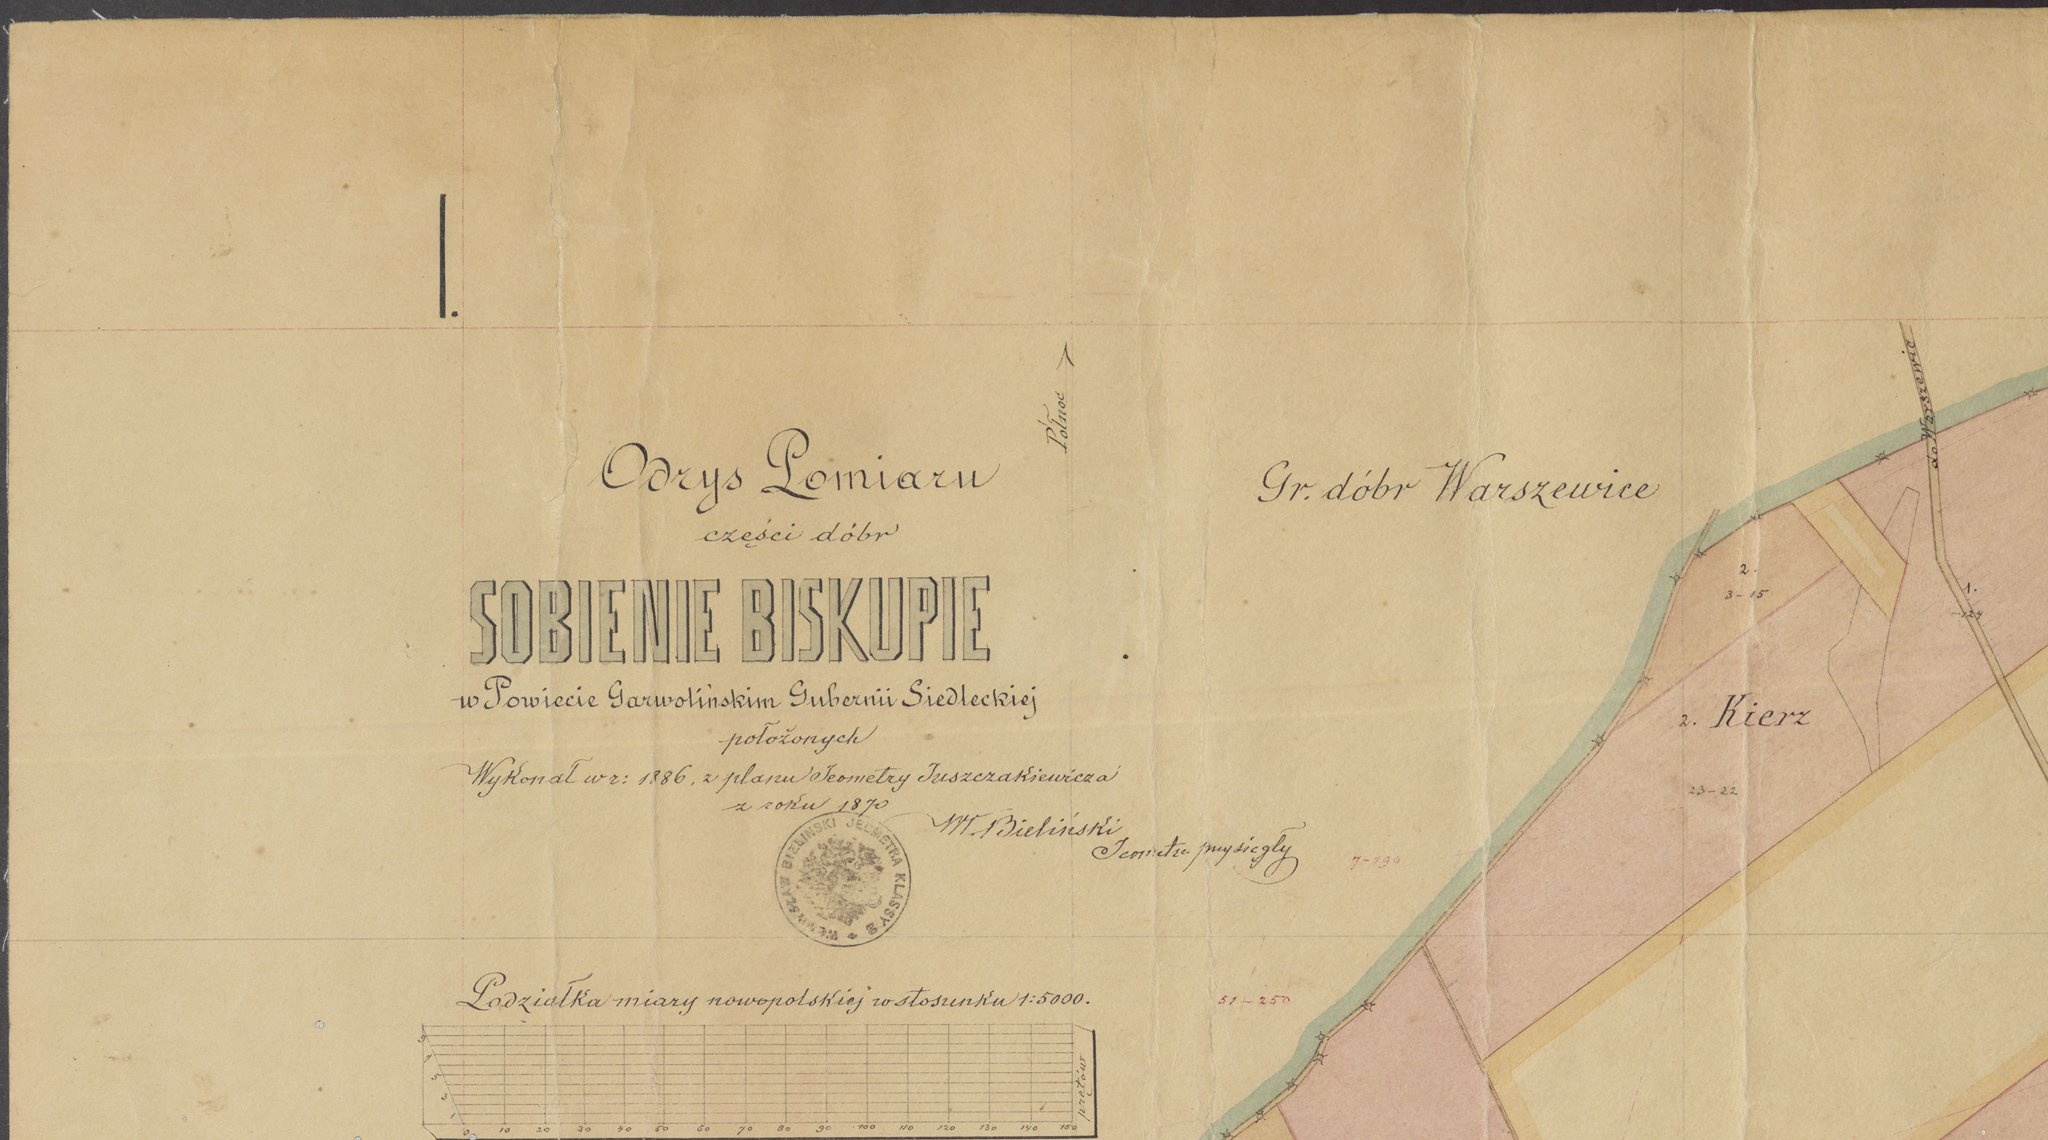 I.
Północ
Odrys Pomiaru
części dóbr
SOBIENIE BISKUPIE
w Powiecie Garwolińskim Gubernii Siedleckiej
położonych
Wykonał w r: 1886, z planu Jeometry Juszczakiewicza
z roku 1870
Wł. Bieliński
Jeometra przysięgły
BIELIŃSKI JEOMETRA KLASSY 2
Podziałka miary nowopolskiej w stosunku 1:5000.
9
7
5
3
1
0 10 20 30 40 50 60 70 80 90 100 110 120 130 140 150
prętów
Gr. dóbr Warszewice
do Warszewic
2.
3-15
1.
-124
2. Kierz
23-22
7-190
51-250